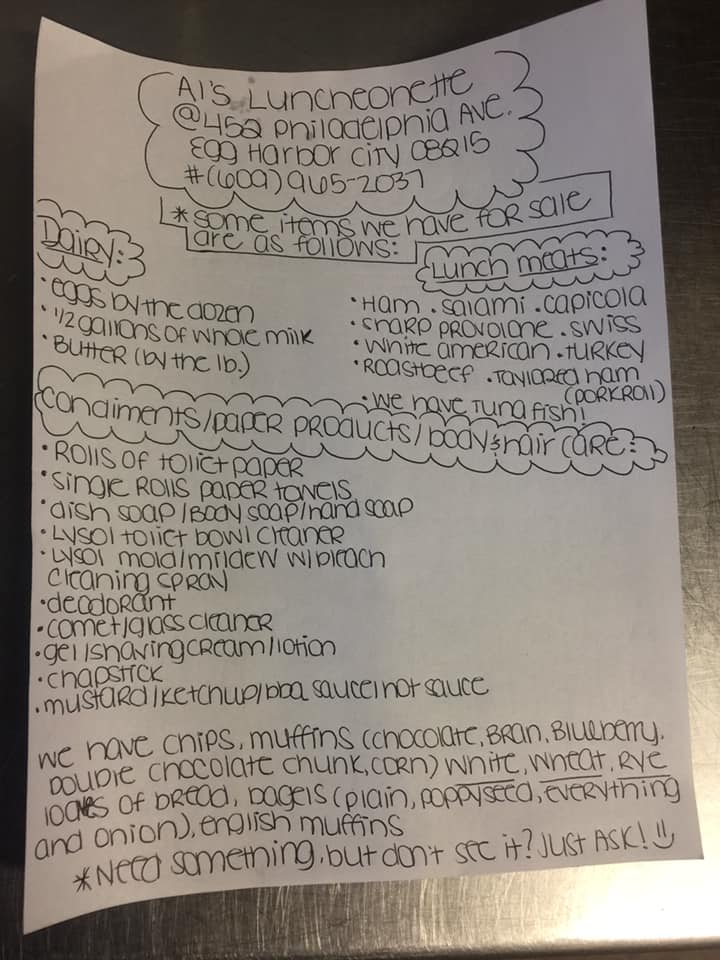 Al's Luncheonette
@452 Philadelphia Ave.
Egg Harbor City 08215
#(609) 965-2037
*some items we have for sale
are as follows:
Dairy:
• eggs by the dozen
• 1/2 gallons of whole milk
• Butter (by the lb.)
Lunch meats:
• Ham . salami . capicola
• sharp provolone . swiss
• white american . turkey
• Roastbeef . Taylored ham
(porkroll)
• we have Tuna fish!
condiments/paper products/body & hair care:
• Rolls of tolict paper
• single Rolls paper towels
• dish soap/Body soap/hand soap
• Lysol tolict bowl cleaner
• Lysol mold/mildew w/bleach
cleaning spray
• deodorant
• comet/glass cleaner
• gel/shaving cream/lotion
• chapstick
• mustard/ketchup/bbq sauce/hot sauce
we have chips, muffins (chocolate, Bran, Blueberry,
Double chocolate chunk, corn) white, wheat, Rye
loaves of bread, bagels (plain, poppyseed, everything
and onion), english muffins
*Need something, but don't see it? Just ASK!